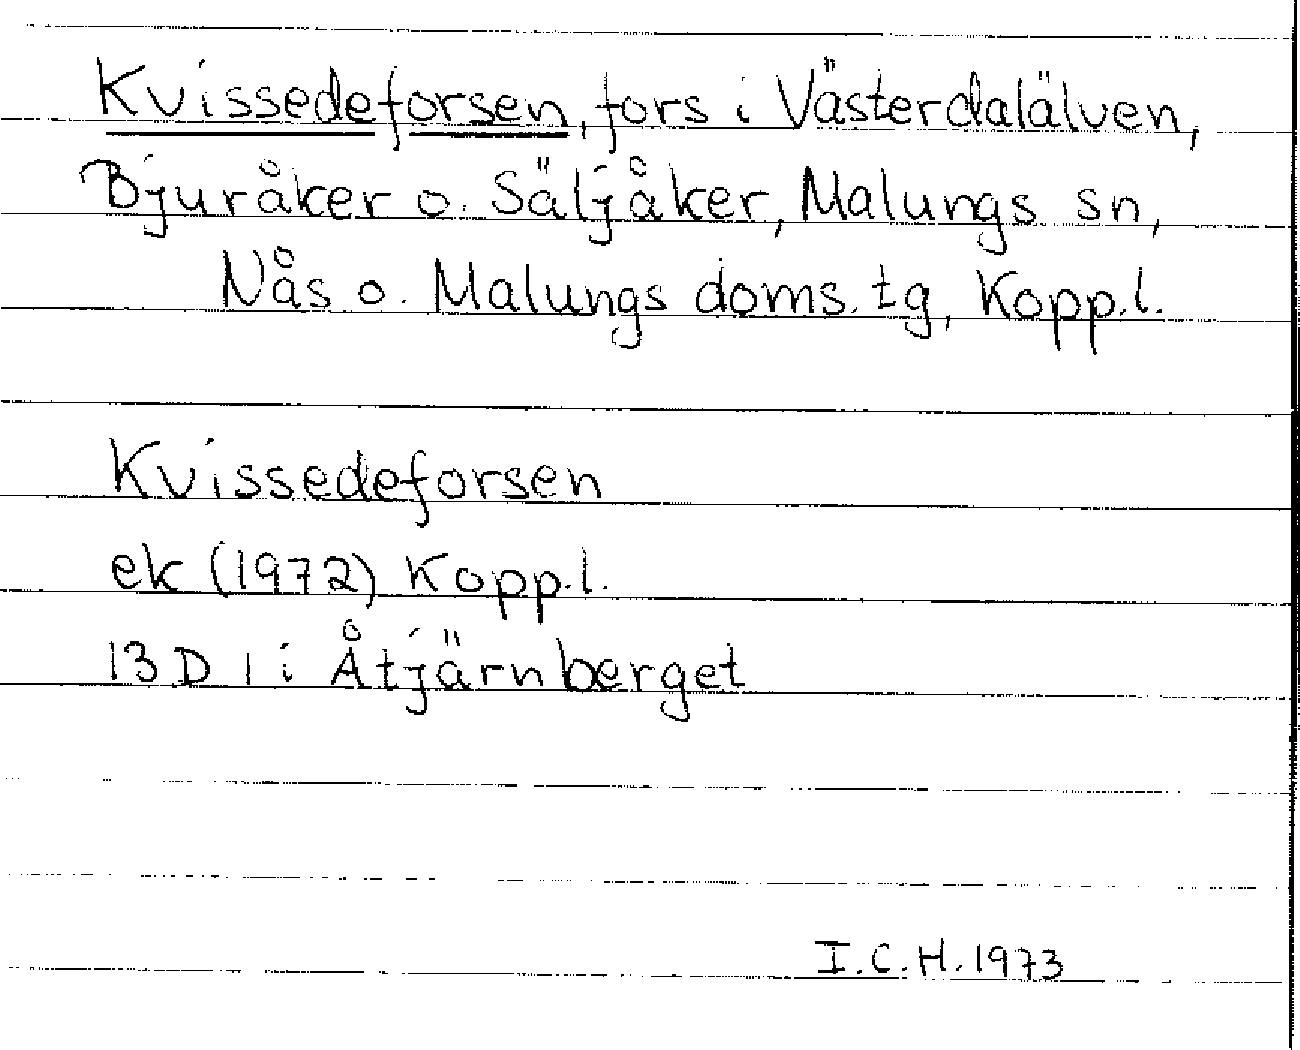 Kvissedeforsen, fors i Västerdalälven,
Bjuråker o. Säljåker, Malungs sn,
Nås o. Malungs doms. tg, Kopp.l.
Kvissedeforsen
ek (1972) Kopp.l.
13 D 1 i Åtjärnberget
I.C.H. 1973